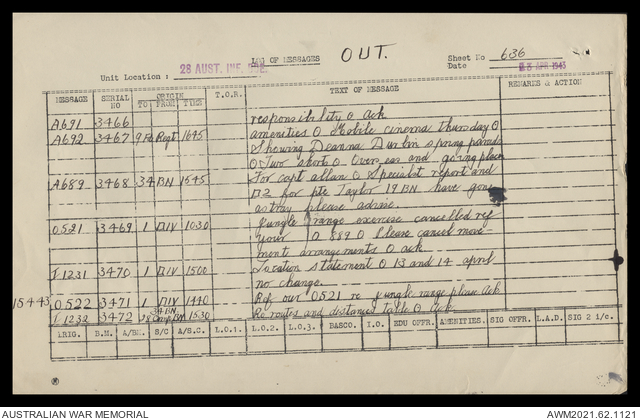 LOG OF MESSAGES OUT. Sheet No 636
Unit Location : 28 AUST. INF. BDE. Date APR 1943
MESSAGE SERIAL NO ORIGIN TO FROM TIME T.O.R. TEXT OF MESSAGE REMARKS & ACTION
A691 3466 responsibility O Ack
A692 3467 9 Fd Regt 1645 amenities O Mobile cinema thursday O
Showing Deanna Durbin spring parade
O Two shorts O and going places
A689 3468 34 BN 1645 For capt allan O Specialist report and
for pte Taylor 19 BN have gone
astray please advise.
O521 3469 1 DIV 1030 Jungle range exercise cancelled ref
your O 889 O Please cancel move-
ment arrangements O ack
I1231 3470 1 DIV 1500 Location statement O 13 and 14 april
no change.
15-4-43 O522 3471 1 DIV 1440 Ref our O521 re jungle range please Ack
I1232 3472 34 BN BN 1530 Re routes and distances table O Ack
ORIG. B.M. A/BM. S/C A/S.C. L.O.1. L.O.2. L.O.3. BASCO. I.O. EDU OFFR. AMENITIES. SIG OFFR. L.A.D. SIG 2 i/c.
AUSTRALIAN WAR MEMORIAL AWM2021.62.1121